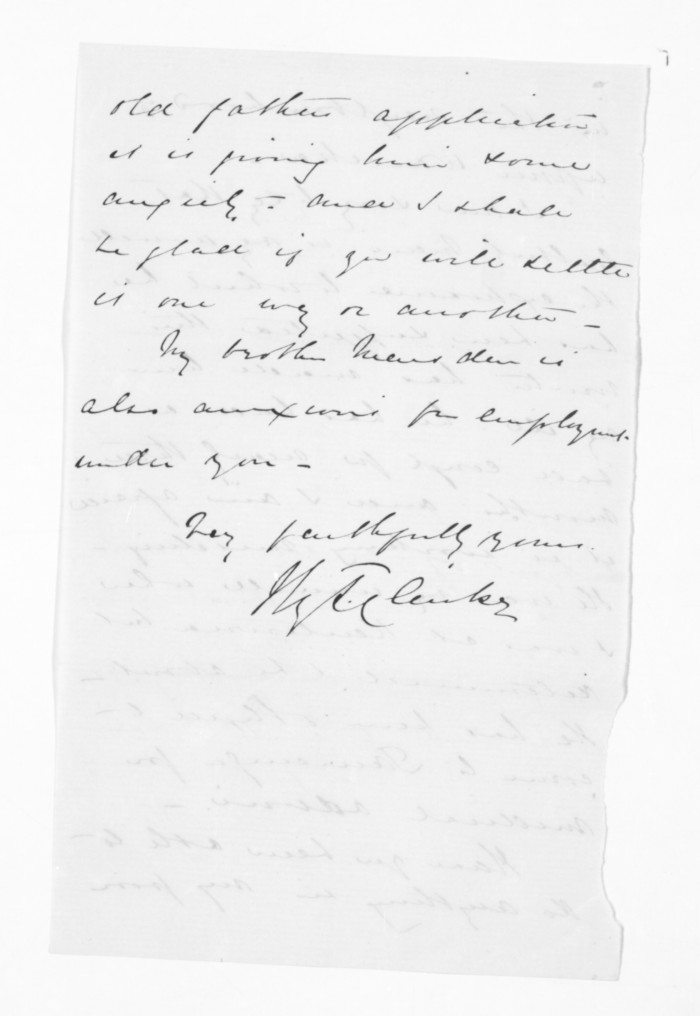 old fathers application
it is giving him some
anxiety - and I shall
be glad if you will settle
it one way or another -
My brother Marsden is
also anxious for employment
under you -
Very faithfully yours
Hy. T. Clarke